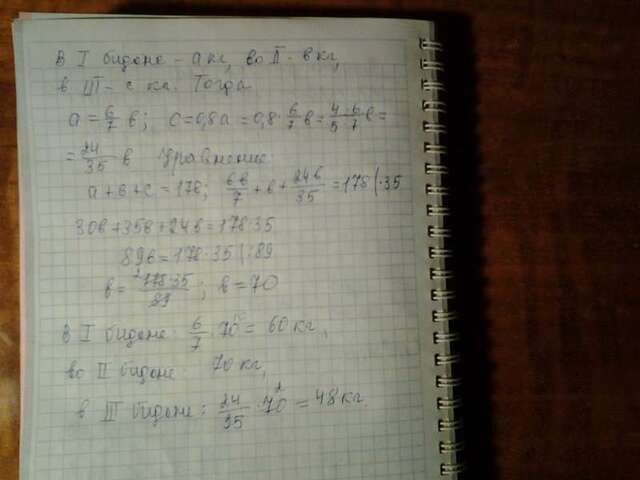 В I бидоне - а кг, во II - в кг,
в III - с кг. Тогда
a = 6/7 в; c = 0,8a = 0,8 · 6/7 в = 4·6/5·7 в =
= 24/35 в Уравнение:
а + в + с = 178; 6в/7 + в + 24в/35 = 178 | ·35
30в + 35в + 24в = 178·35
89в = 178·35 | :89
в = 178·35/89; в = 70
В I бидоне: 6/7 · 70 = 60 кг,
во II бидоне: 70 кг,
в III бидоне: 24/35 · 70 = 48 кг.